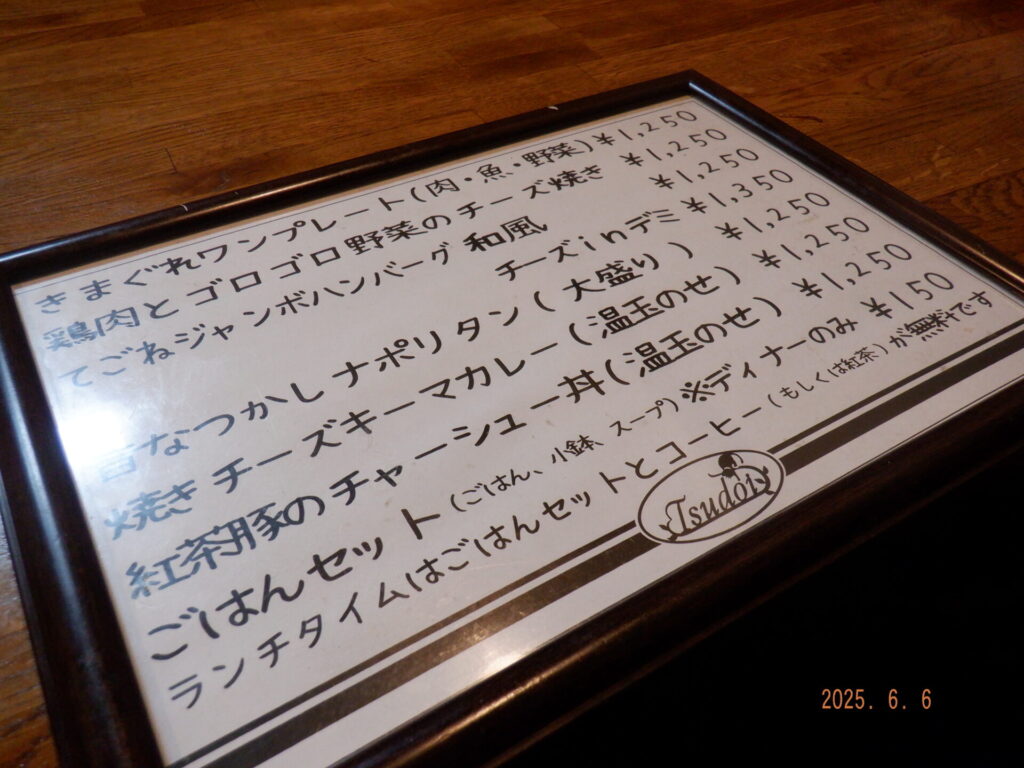 きまぐれワンプレート(肉・魚・野菜) ¥1,250
鶏肉とゴロゴロ野菜のチーズ焼き ¥1,250
てごねジャンボハンバーグ 和風 ¥1,250
チーズinデミ ¥1,350
昔なつかしナポリタン(大盛り) ¥1,250
焼きチーズキーマカレー(温玉のせ) ¥1,250
紅茶豚のチャーシュー丼(温玉のせ) ¥1,250
ごはんセット(ごはん、小鉢、スープ)※ディナーのみ ¥150
ランチタイムはごはんセットとコーヒー(もしくは紅茶)が無料です
Tsudoi
2025. 6. 6